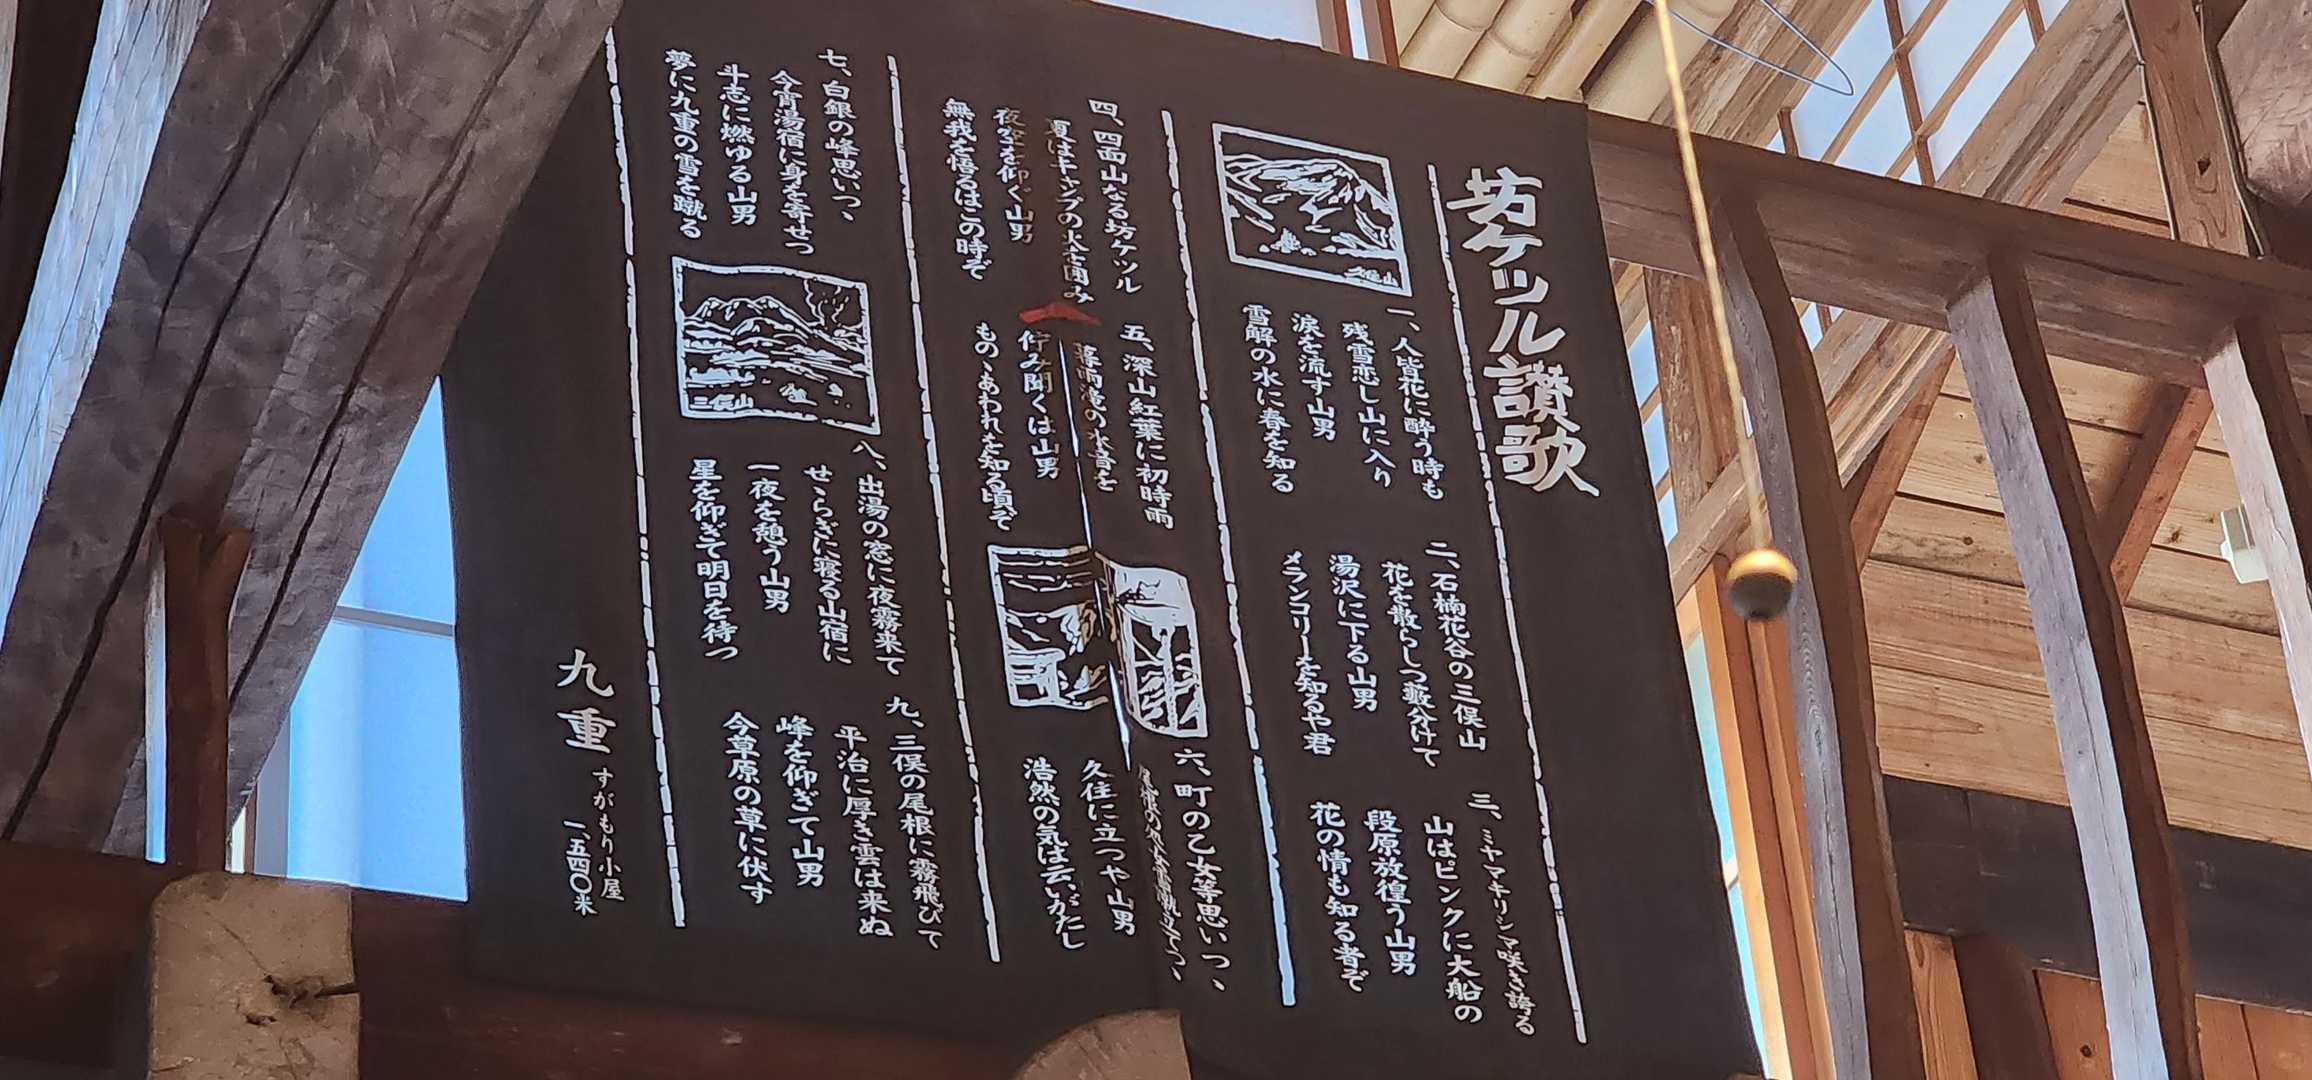 坊ケツル讃歌
一、人皆花に酔う時も
残雪恋し山に入り
涙を流す山男
雪解の水に春を知る
二、石楠花谷の三俣山
花を散らしつ藪分けて
湯沢に下る山男
メランコリーを知るや君
三、ミヤマキリシマ咲き誇る
山はピンクに大船の
段原放徨う山男
花の情も知る者ぞ
久住山
四、四面山なる坊ケツル
夏はキャンプの火を囲み
夜空を仰ぐ山男
無我を悟るはこの時ぞ
五、深山紅葉に初時雨
の水音を
佇み聞くは山男
ものゝあわれを知る頃ぞ
六、町の乙女等思いつゝ
久住に立つや山男
浩然の気は云いがたし
七、白銀の峰思いつゝ
今宵湯宿に身を寄せつ
斗志に燃ゆる山男
夢に九重の雪を蹴る
三俣山
八、出湯の窓に夜霧来て
せゝらぎに寝る山宿に
一夜を憩う山男
星を仰ぎて明日を待つ
九、三俣の尾根に霧飛びて
平治に厚き雲は来ぬ
峰を仰ぎて山男
今草原の草に伏す
九重
すがもり小屋
一、五四〇米